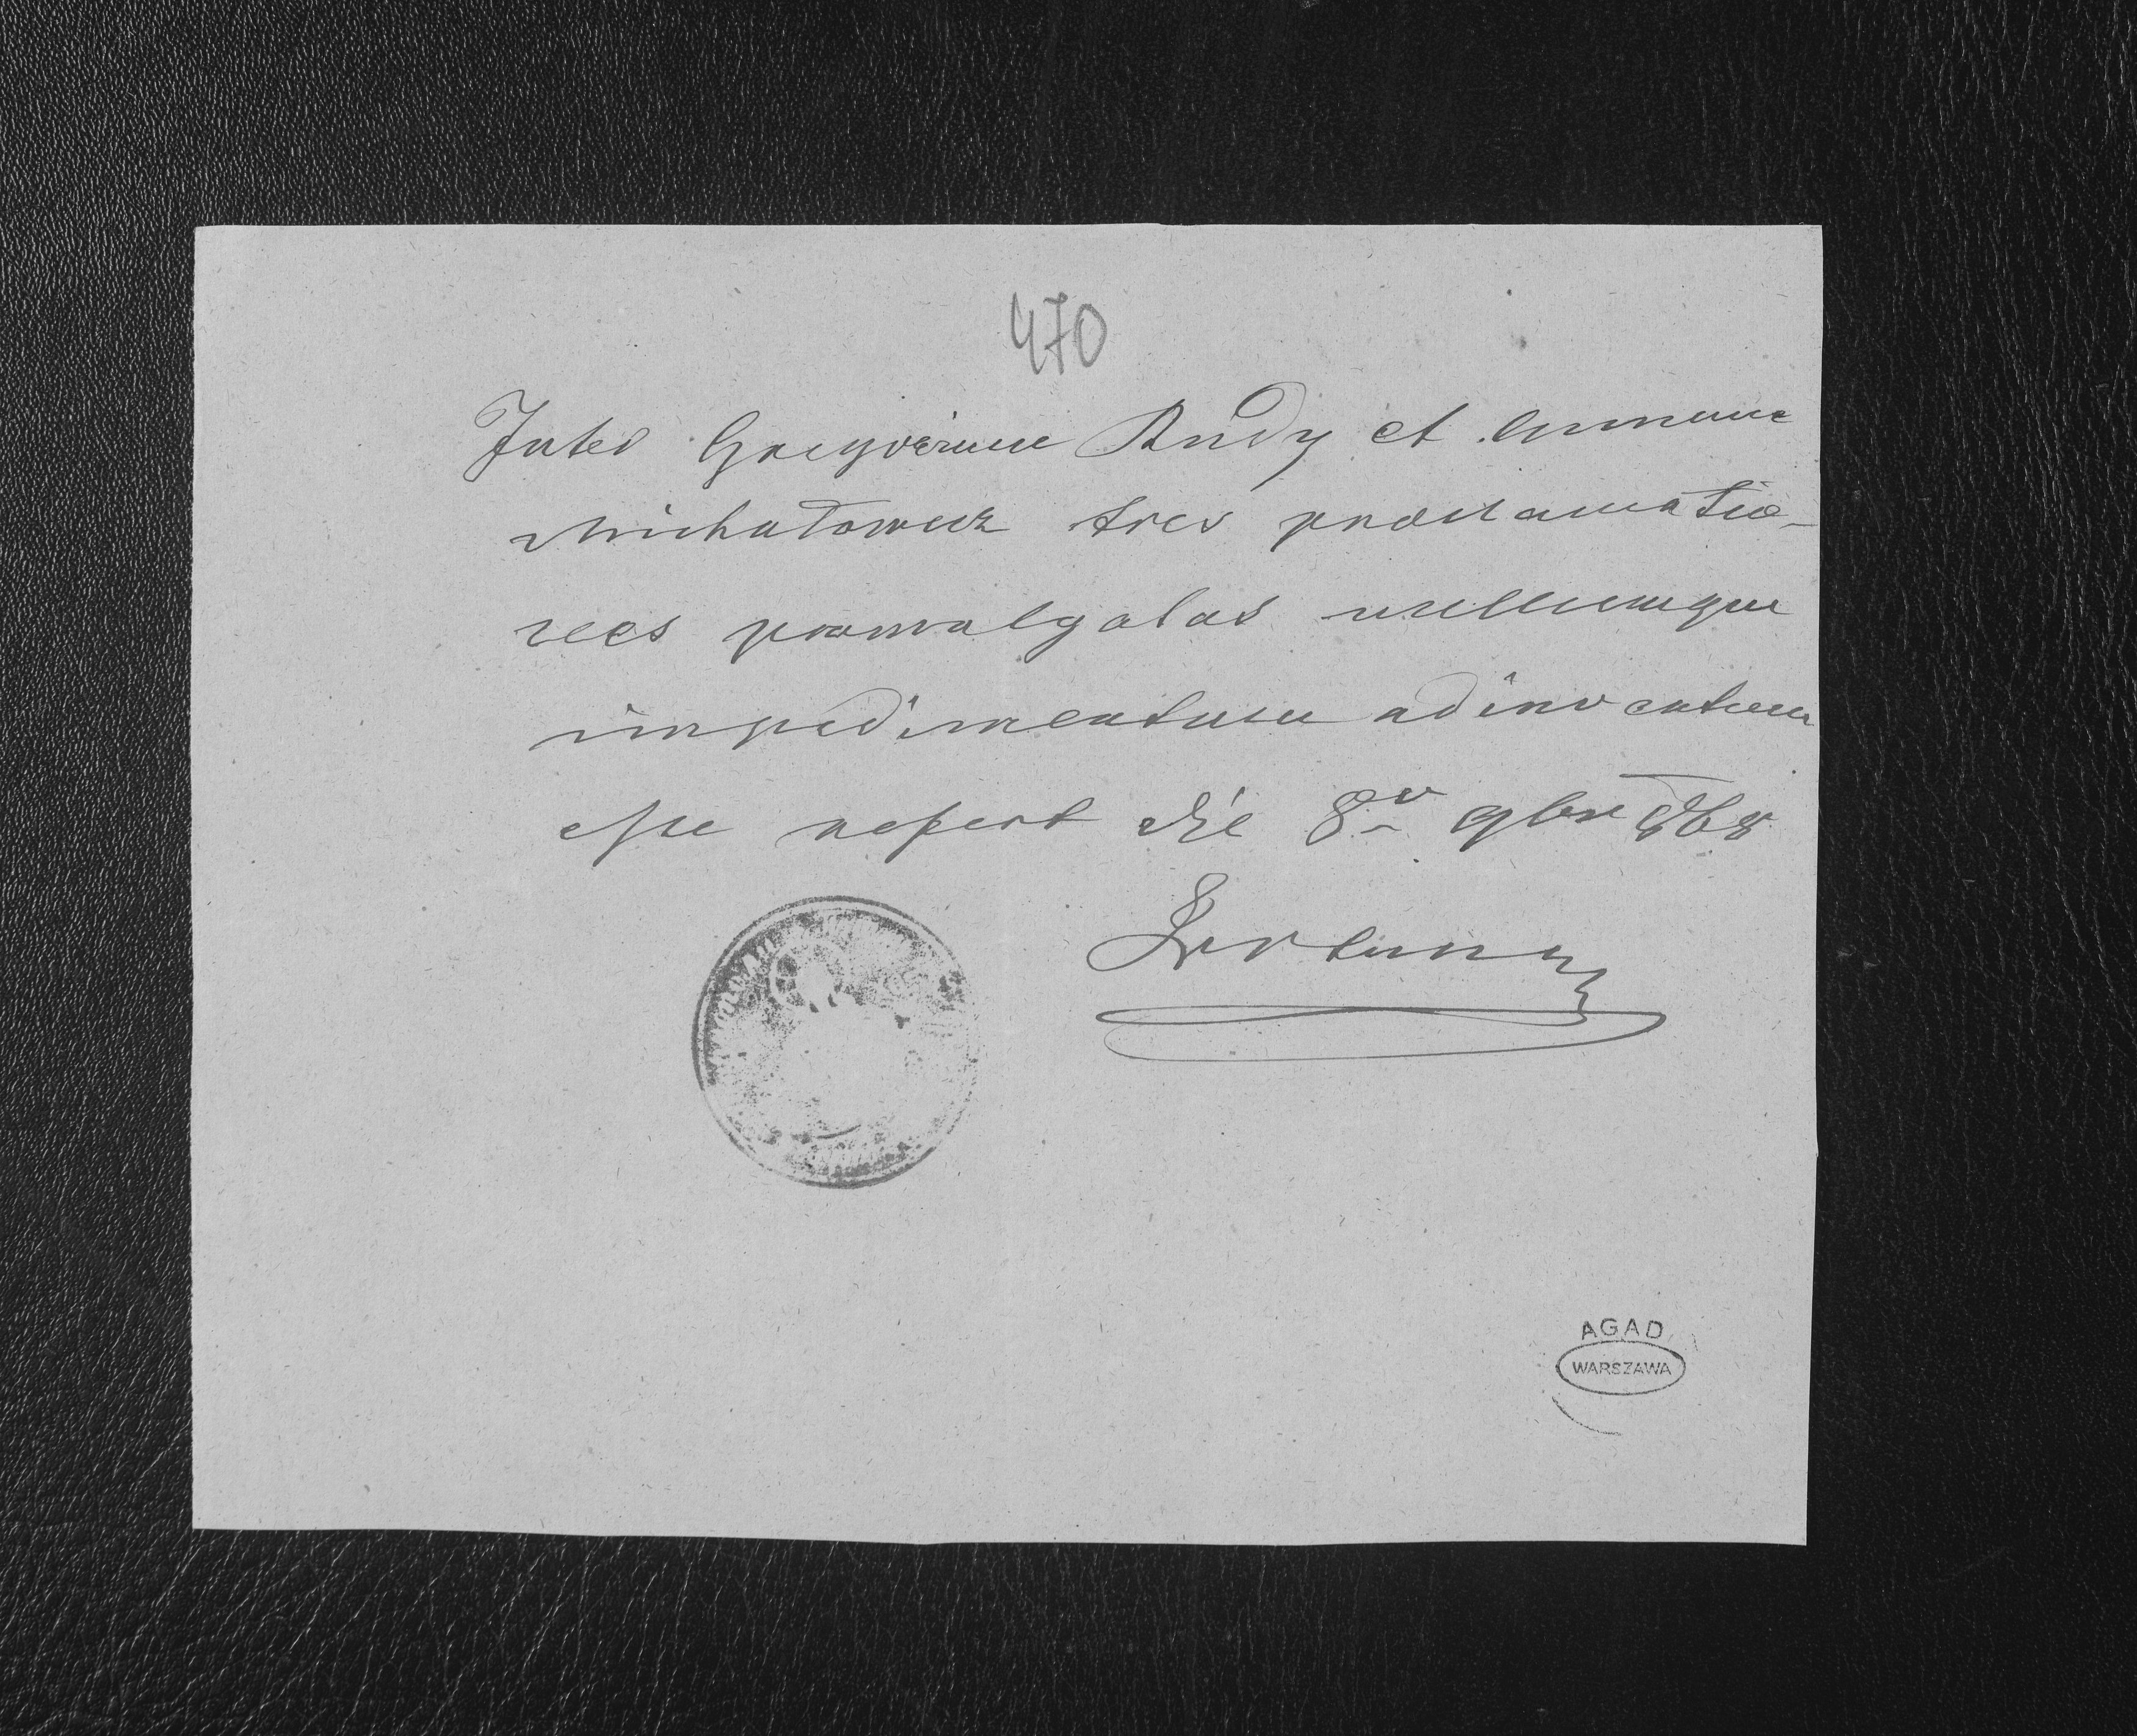 470
Inter Gregorium Rudy et Annam
Michałowicz tres proclamatio-
nes promulgatas nullumque
impedimentum adinventum
esse refert die 8va 9bris 868
AGAD
WARSZAWA